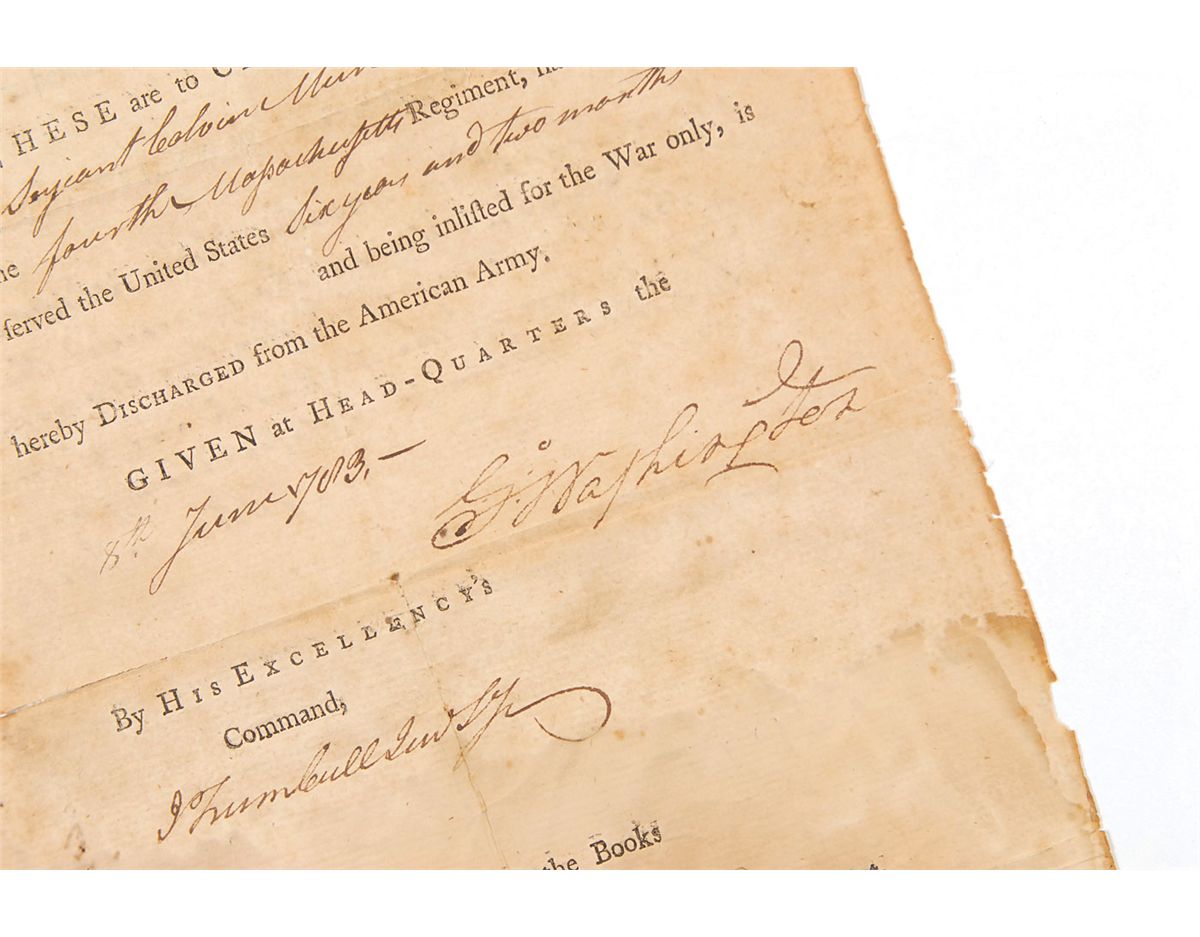 HESE are to
Serjeant Calvin
fourth Massachusetts Regiment,
ſerved the United States six years and two months
and being inliſted for the War only, is
hereby DISCHARGED from the American Army.
GIVEN at HEAD-QUARTERS the
8th June 1783.—
Go: Washington
By HIS EXCELLENCY'S
Command,
J Trumbull Jun Sy
the Books